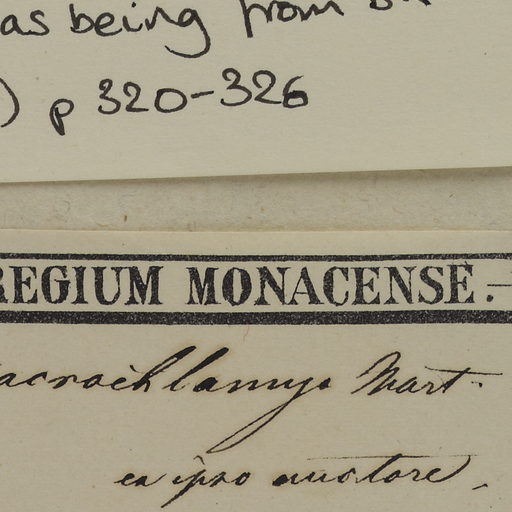 as being from
) p 320-326
REGIUM MONACENSE.
acrochlamys Mart.
ex ipso auctore,